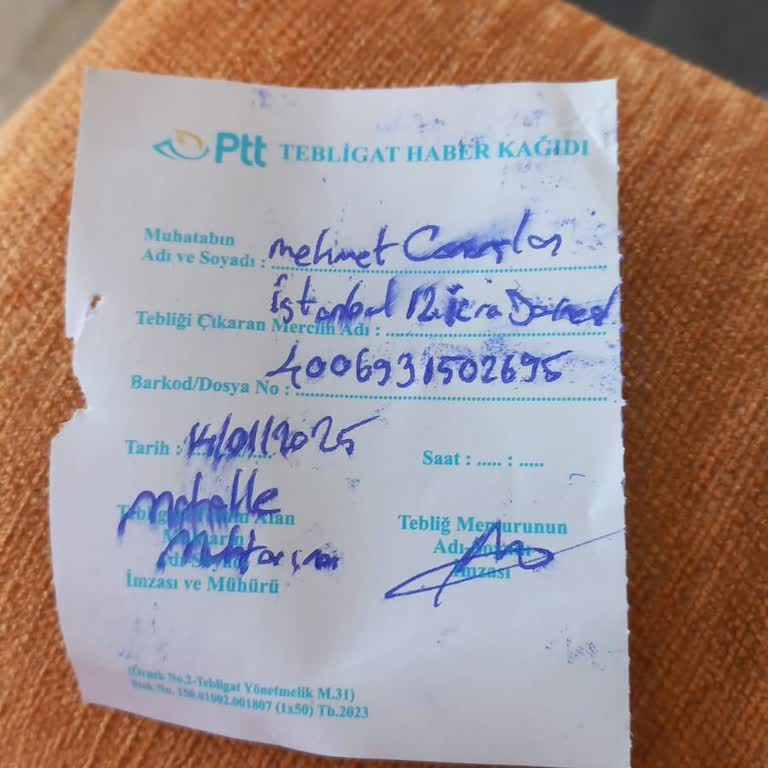 Ptt TEBLİGAT HABER KAĞIDI
Muhatabın
Adı ve Soyadı : mehmet
Tebliği Çıkaran Merciin Adı : İstanbul 12. icra Dairesi
Barkod/Dosya No : 4006931502695
Tarih : 14/01/2025
Saat : ..... : .....
mahalle
muhtarına
Alan
İmzası ve Mühürü
Tebliğ Memurunun
Adı Soyadı
İmzası
(Örnek No.2-Tebligat Yönetmelik M.31)
Stok No. 150.01002.001807 (1x50) Tb.2023